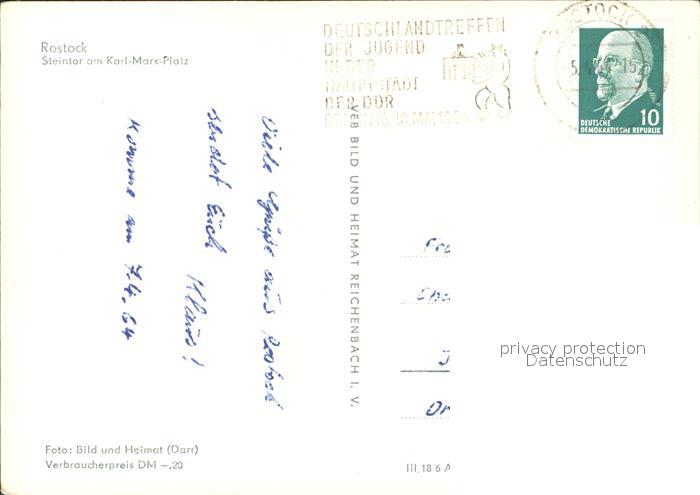 Rostock
Steintor am Karl-Marx-Platz
DEUTSCHLANDTREFFEN
DER JUGEND
IN DER
HAUPTSTADT
DER DDR
BERLIN 16.-18. MAI 1964
ROSTOCK
10
DEUTSCHE
DEMOKRATISCHE REPUBLIK
Viele Grüße aus Rostock
sendet Euch Klaus!
Komme am 7.4.64
VEB BILD UND HEIMAT REICHENBACH I. V.
privacy protection
Datenschutz
Foto: Bild und Heimat (Darr)
Verbraucherpreis DM -,20
III, 18 6 A